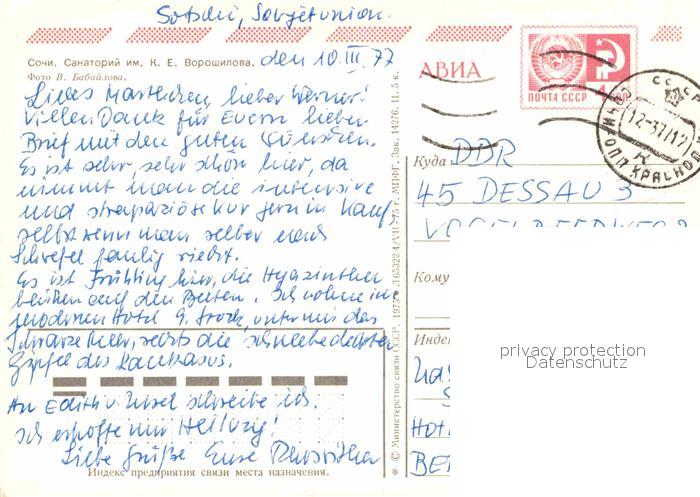 Sotschi, Sovjetunion.
den 10. III. 77
Сочи. Санаторий им. К. Е. Ворошилова.
Фото В. Бабайлова.
Liebes Marthchen, lieber Werner!
Vielen Dank für Euern lieben
Brief mit den guten Wünschen.
Es ist sehr, sehr schön hier, da
nimmt man die intensive
und strapaziöse Kur gern in Kauf,
selbst wenn man selber nach
Schwefel faulig riecht.
Es ist Frühling hier, die Hyazinthen
blühen auf den Beeten. Ich wohne im
modernen Hotel 9. Stock, unter mir das
Schwarze Meer, rechts die schneebedeckten
Gipfel des Kaukasus.
An Edith u. Ursel schreibe ich.
Ich erhoffe mir Heilung!
Liebe Grüße Eure
Индекс предприятия связи места назначения.
© Министерство связи СССР, 1975 МПФГ. Зак. 14276. Ц. 5 к.
АВИА
ПОЧТА СССР
Куда DDR
45 DESSAU 3
Кому
Индек
privacy protection
Datenschutz
HOT
BE